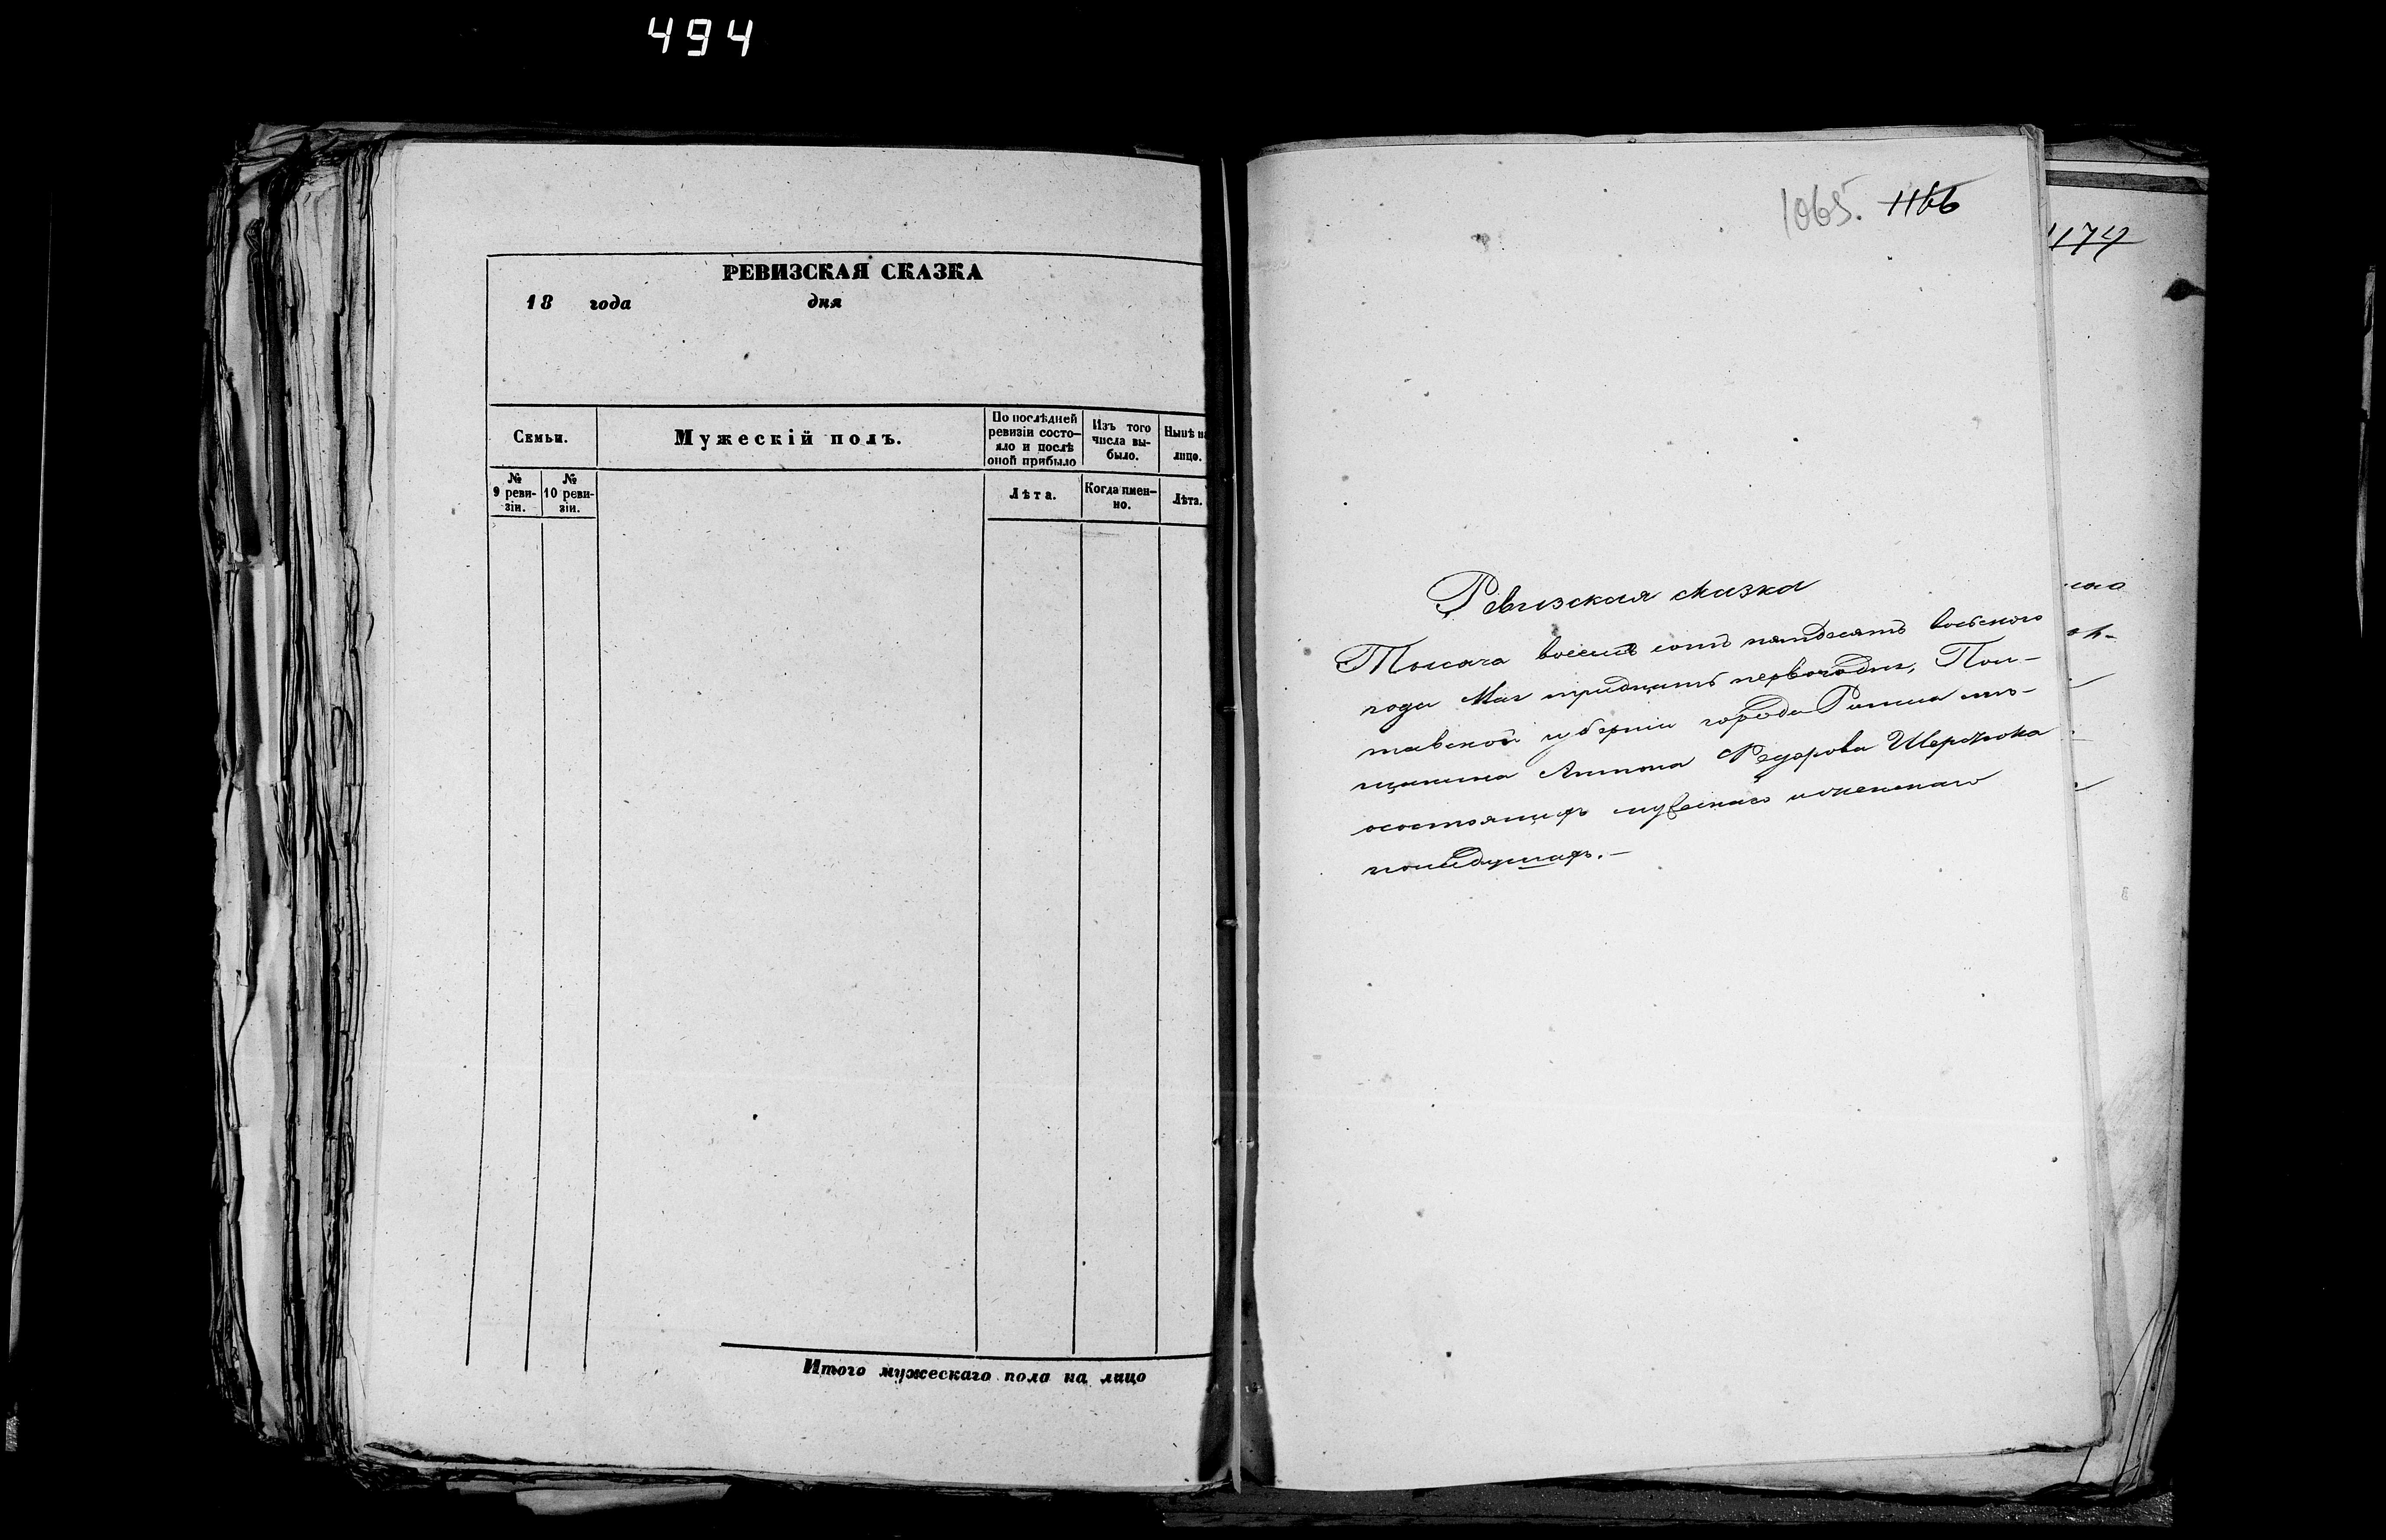 494
РЕВИЗСКАЯ СКАЗКА
18 года дня
Семьи.
Мужескій полъ.
По послѣдней
ревизіи состо-
яло и послѣ
оной прибыло
Изъ того
числа вы-
было.
Нынѣ на
лицо.
№
9 реви-
зіи.
№
10 реви-
зіи.
Лѣта.
Когда имен-
но.
Лѣта.
Итого мужескаго пола на лицо
1065. 1166
Ревизская сказка
Тысяча восемь сотъ пятдесятъ восьмого
года Мая тридцать первого дня, Пол-
тавской губерніи города Ромна мѣ-
щанина Антона Федорова
о состоящихъ мужеска и женскаго
пола душахъ.—
1174